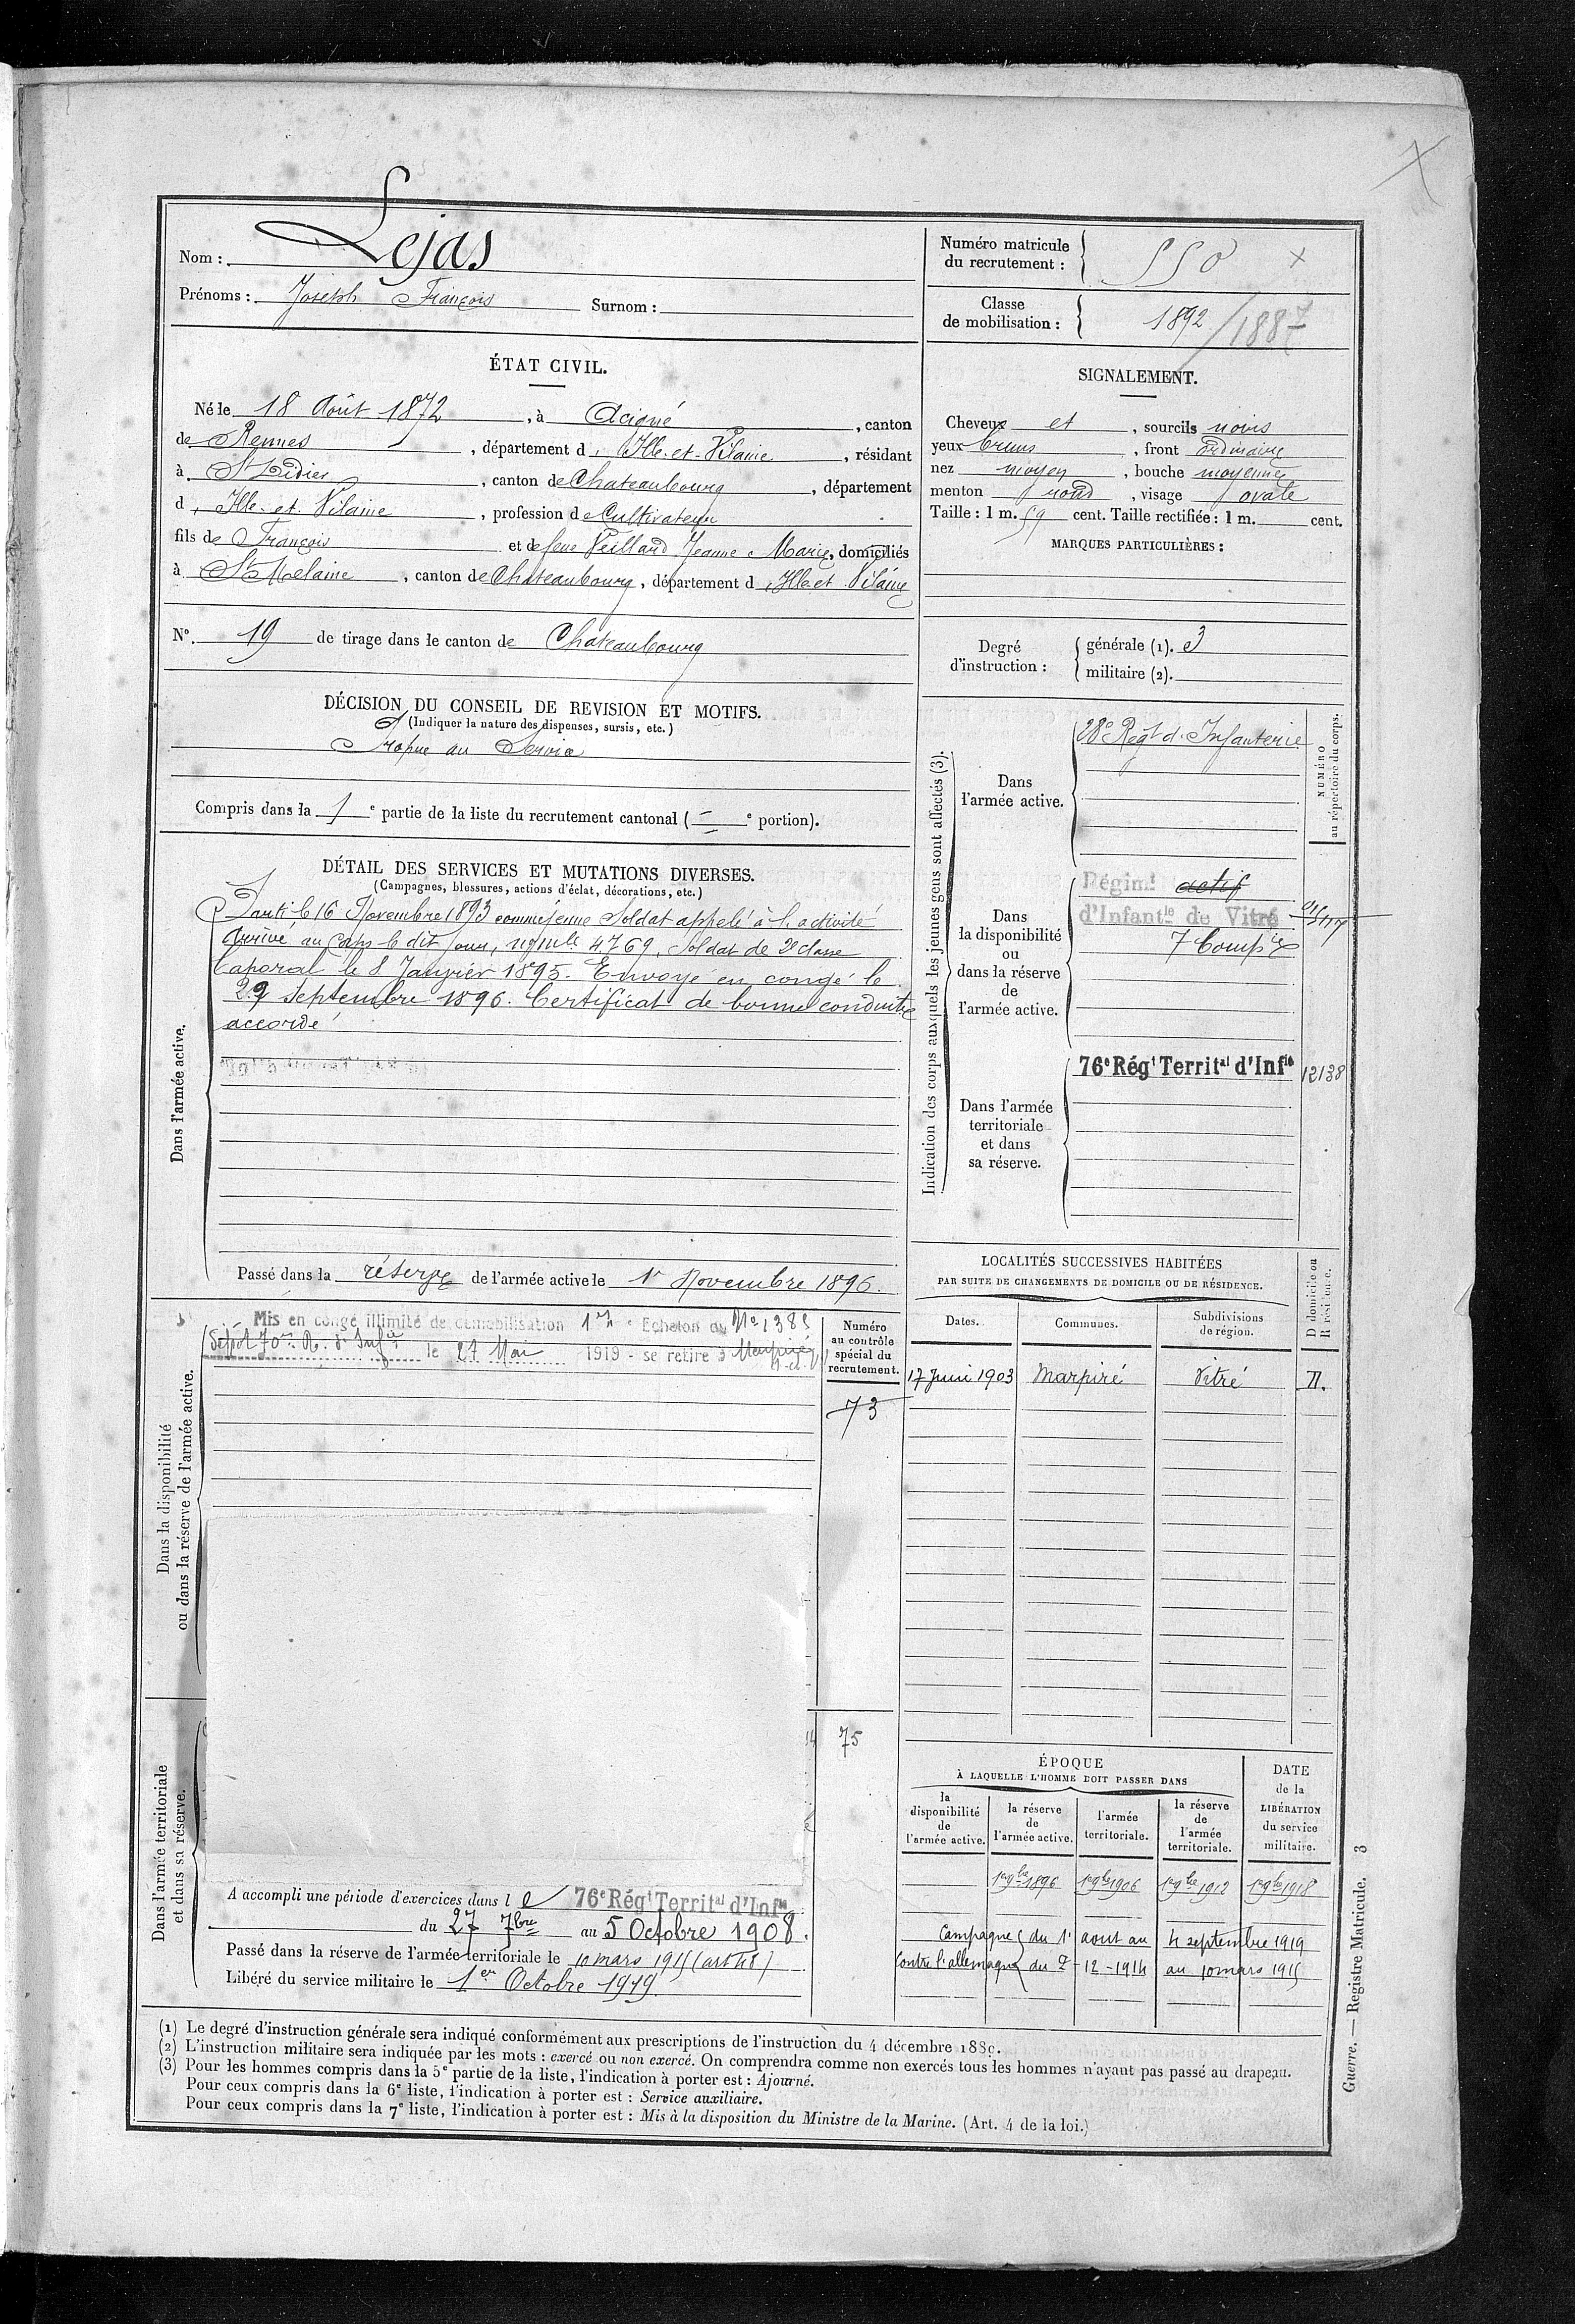 Nom : Lejas
Prénoms : Joseph François Surnom :
Numéro matricule du recrutement : 550
Classe de mobilisation : 1892 / 1887
ÉTAT CIVIL.
Né le 18 Août 1872, à Acigné, canton
de Rennes, département d'Ille-et-Vilaine, résidant
à St Didier, canton de Chateaubourg, département
d'Ille-et-Vilaine, profession de Cultivateur
fils de François et de feue Veillard Jeanne Marie, domiciliés
à St Melaine, canton de Chateaubourg, département d'Ille et Vilaine
N° 19 de tirage dans le canton de Chateaubourg
SIGNALEMENT.
Cheveux et, sourcils noirs
yeux bruns, front ordinaire
nez moyen, bouche moyenne
menton rond, visage ovale
Taille : 1 m. 59 cent. Taille rectifiée : 1 m. cent.
MARQUES PARTICULIÈRES :
Degré d'instruction : générale (1). 3
militaire (2).
DÉCISION DU CONSEIL DE REVISION ET MOTIFS.
(Indiquer la nature des dispenses, sursis, etc.)
Propre au Service
Compris dans la 1e partie de la liste du recrutement cantonal ( e portion).
DÉTAIL DES SERVICES ET MUTATIONS DIVERSES.
(Campagnes, blessures, actions d'éclat, décorations, etc.)
Dans l'armée active.
Parti le 16 Novembre 1893 comme jeune Soldat appelé à l'activité
Arrivé au Corps le dit jour, no mle 4769, Soldat de 2e classe
Caporal le 8 Janvier 1895. Envoyé en congé le
29 Septembre 1896. Certificat de bonne conduite
accordé
Passé dans la réserve de l'armée active le 1er Novembre 1896.
Indication des corps auxquels les jeunes gens sont affectés (3).
NUMÉRO au répertoire du corps.
Dans l'armée active.
28e Régt d'Infanterie
Dans la disponibilité ou dans la réserve de l'armée active.
Régimt actif
d'Infantie de Vitré
7 Compie
Dans l'armée territoriale et dans sa réserve.
76e Régt Territal d'Infie 12138
Dans la disponibilité ou dans la réserve de l'armée active.
Mis en congé illimité de démobilisation 1er Echelon
Dépôt 70e R. d'Infie le 27 Mai 1919 - se retire à Marpiré
Numéro au contrôle spécial du recrutement.
73
75
LOCALITÉS SUCCESSIVES HABITÉES
PAR SUITE DE CHANGEMENTS DE DOMICILE OU DE RÉSIDENCE.
Dates. Communes. Subdivisions de région. D domicile ou R résidence.
17 Juin 1903 Marpiré Vitré D.
Dans l'armée territoriale et dans sa réserve.
A accompli une période d'exercices dans le 76e Régt Territal d'Infie
du 27 7bre au 5 Octobre 1908.
Passé dans la réserve de l'armée territoriale le 10 mars 1915 (art 48)
Libéré du service militaire le 1er Octobre 1919.
ÉPOQUE
À LAQUELLE L'HOMME DOIT PASSER DANS
la disponibilité de l'armée active. la réserve de l'armée active. l'armée territoriale. la réserve de l'armée territoriale. DATE de la LIBÉRATION du service militaire.
1er 9bre 1896 1er 9bre 1906 1er 9bre 1912 1er 9bre 1918
Campagnes du 1er aout au 4 septembre 1919
Contre l'allemagne du 7-12-1914 au 10 mars 1915
(1) Le degré d'instruction générale sera indiqué conformément aux prescriptions de l'instruction du 4 décembre 1889.
(2) L'instruction militaire sera indiquée par les mots : exercé ou non exercé. On comprendra comme non exercés tous les hommes n'ayant pas passé au drapeau.
(3) Pour les hommes compris dans la 5e partie de la liste, l'indication à porter est : Ajourné.
Pour ceux compris dans la 6e liste, l'indication à porter est : Service auxiliaire.
Pour ceux compris dans la 7e liste, l'indication à porter est : Mis à la disposition du Ministre de la Marine. (Art. 4 de la loi.)
Guerre. — Registre Matricule. 3